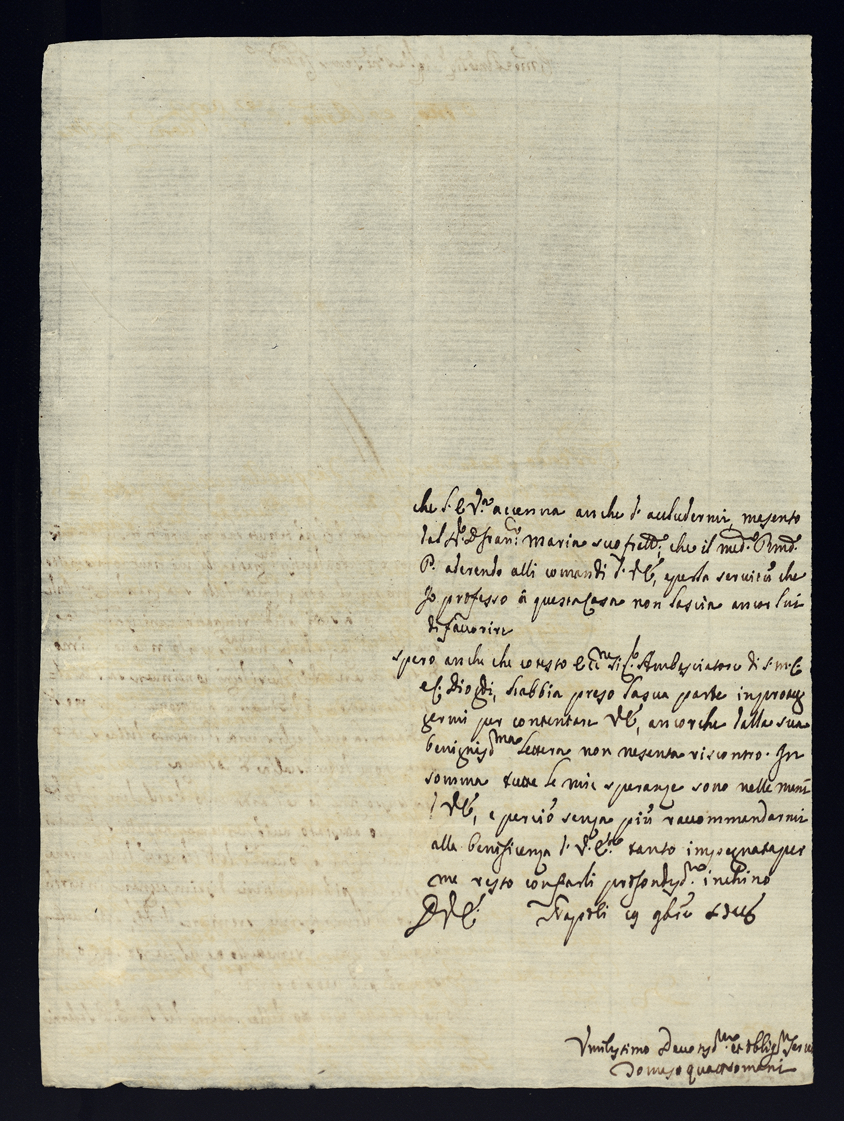 che S. E. V.ra accenna anche d' accludermi, mesento
dal S.r D. Fran.co Maria suo fratt.o, che il med.o Rmd.o
P. aderendo alli comandi d' V.E., e p questa servitù che
Jo professo à questa Casa non lascia ancor lui
di favorire
spero anche che cotesto Ecc.mo Sig.r Ambasciatore di S. M. C.
e C. s'habbia preso la sua parte in proteg
germi per contentare V.E., ancorche dalla sua
benigniss.ma lettera non ne senta riscontro. In
somma tutte le mie speranze sono nelle mani
d' V.E., e perciò senza più raccommandarmi
alla beneficenza d' V. E. tanto impegnata per
me resto con farli profondiss.mo inchino
D. V. E. Napoli 19 9bre
Vmilissimo Deuotiss.mo et oblig.mo
Domeso quattromani